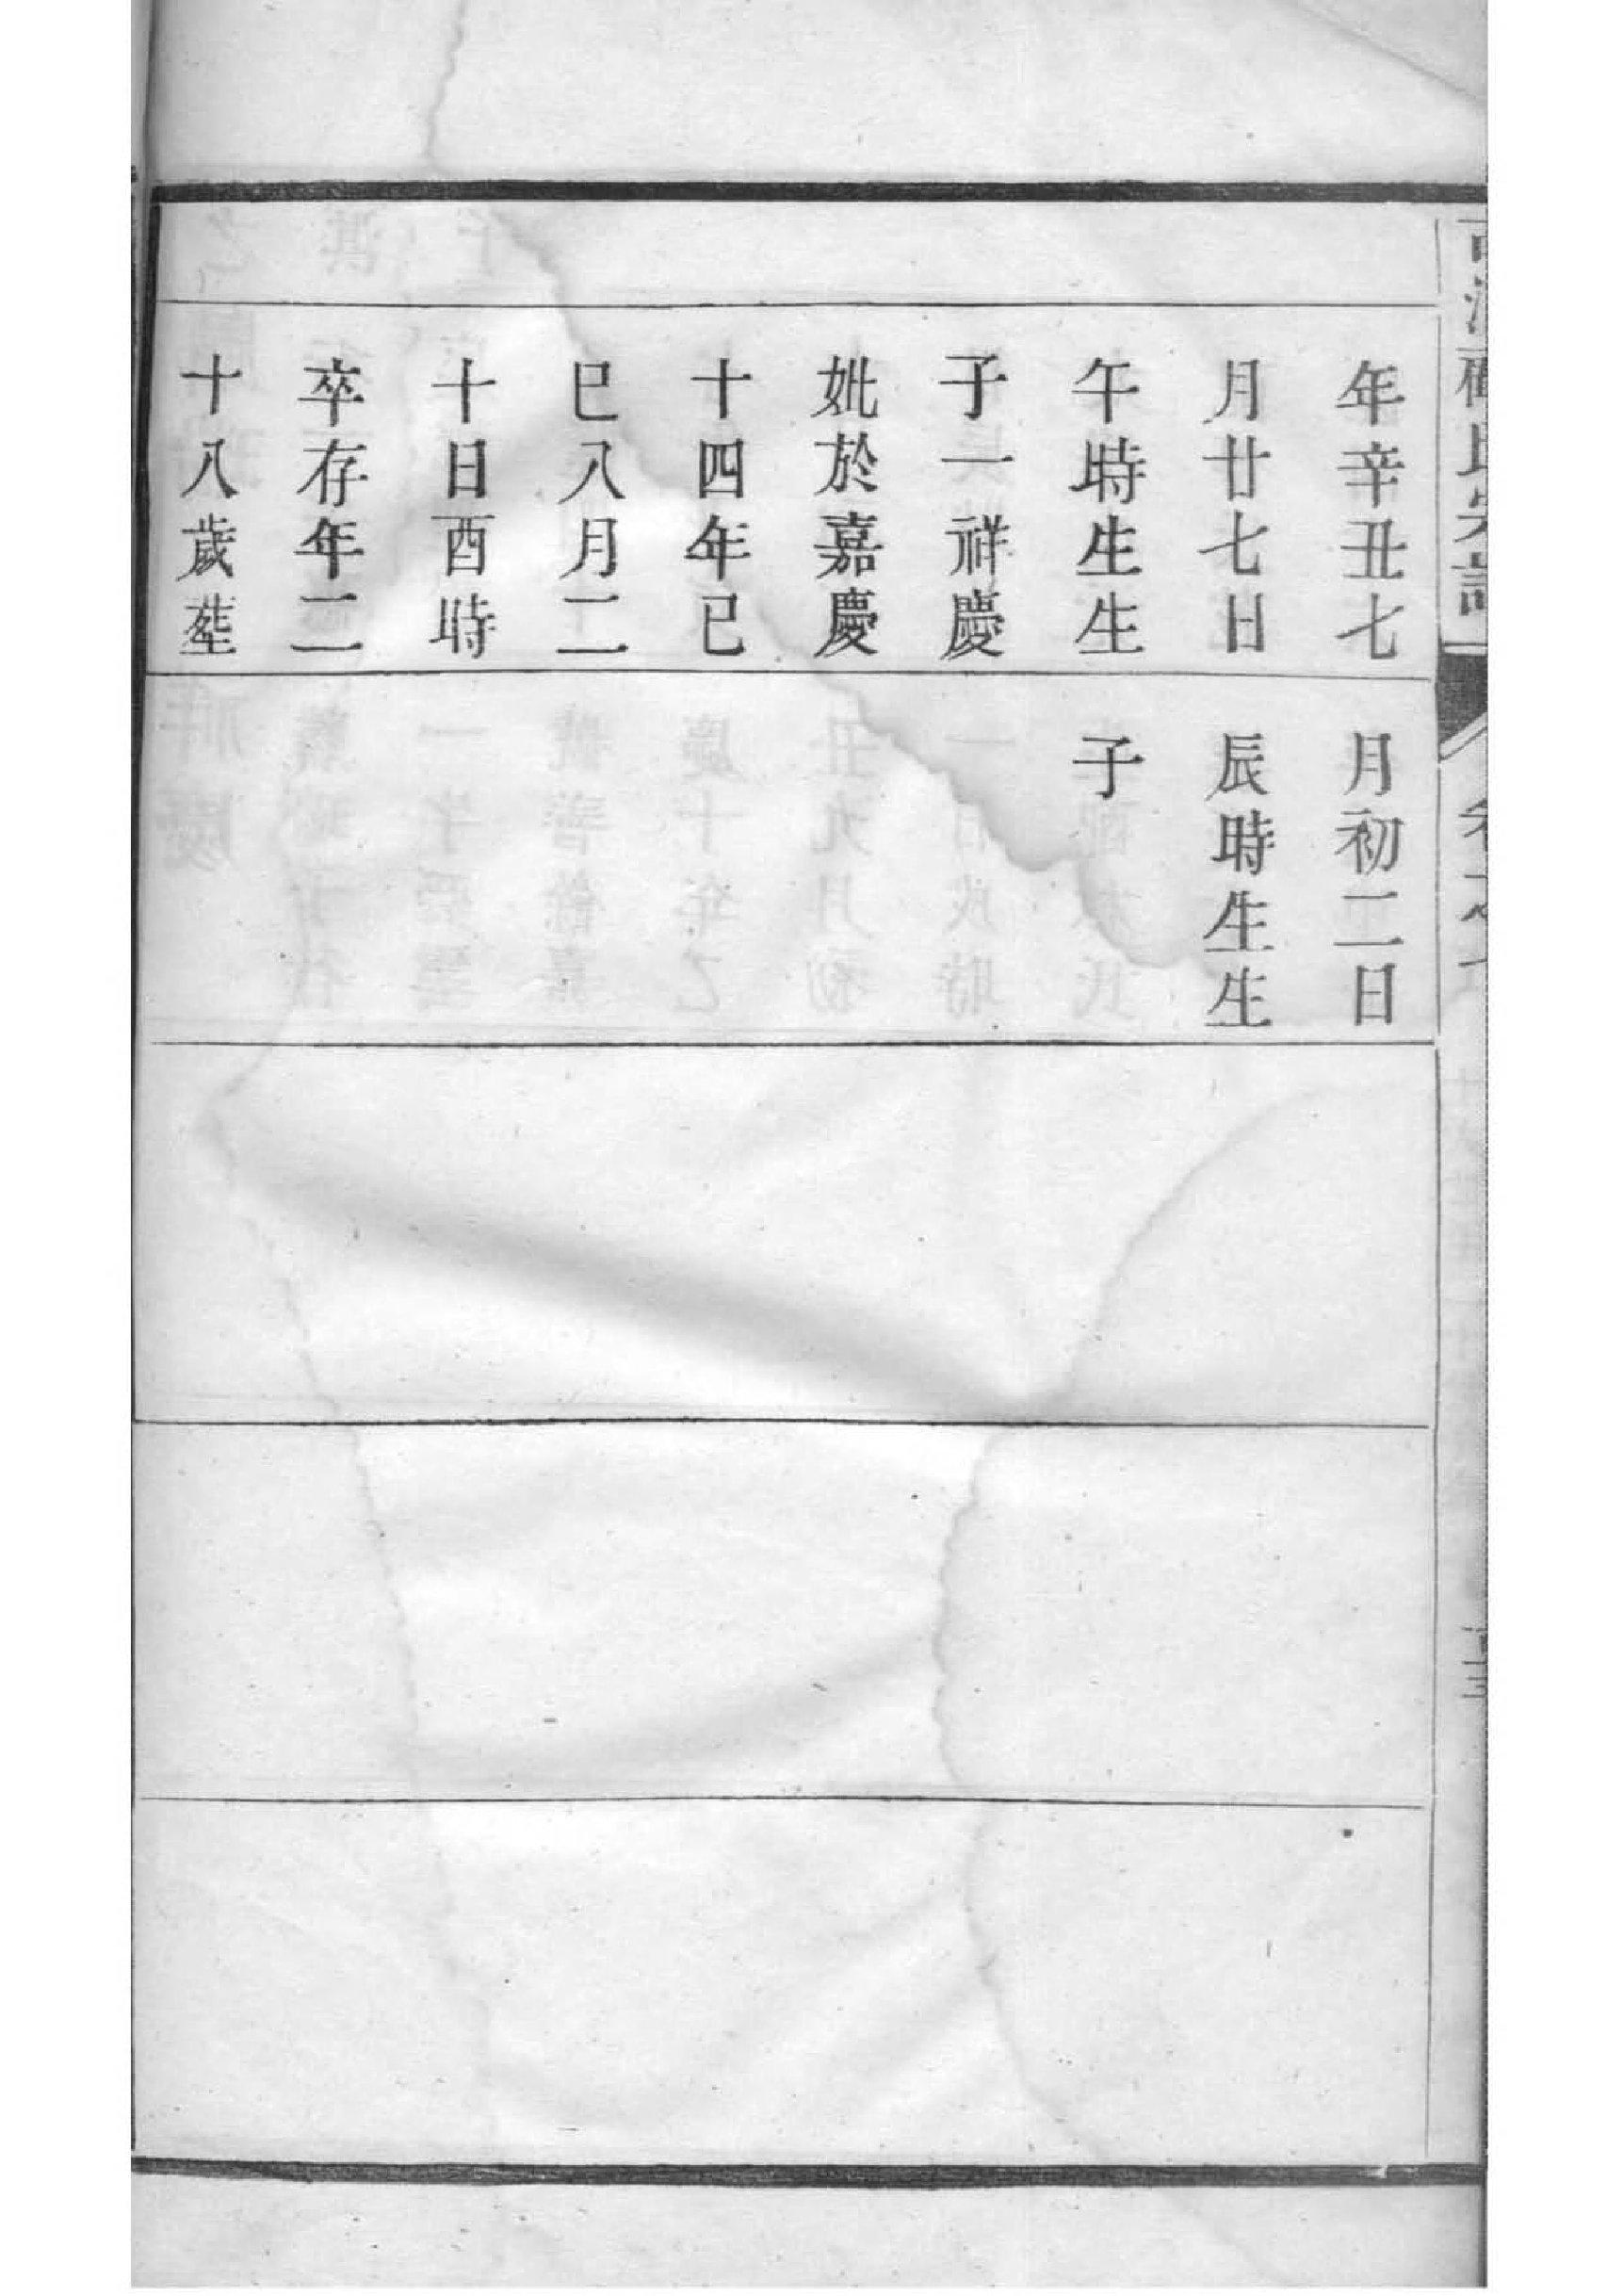 年辛丑七
月廿七日
午時生生
子一祥慶
妣於嘉慶
十四年已
巳八月二
十日酉時
卒存年二
十八歲塟
月初二日
辰時生生
子